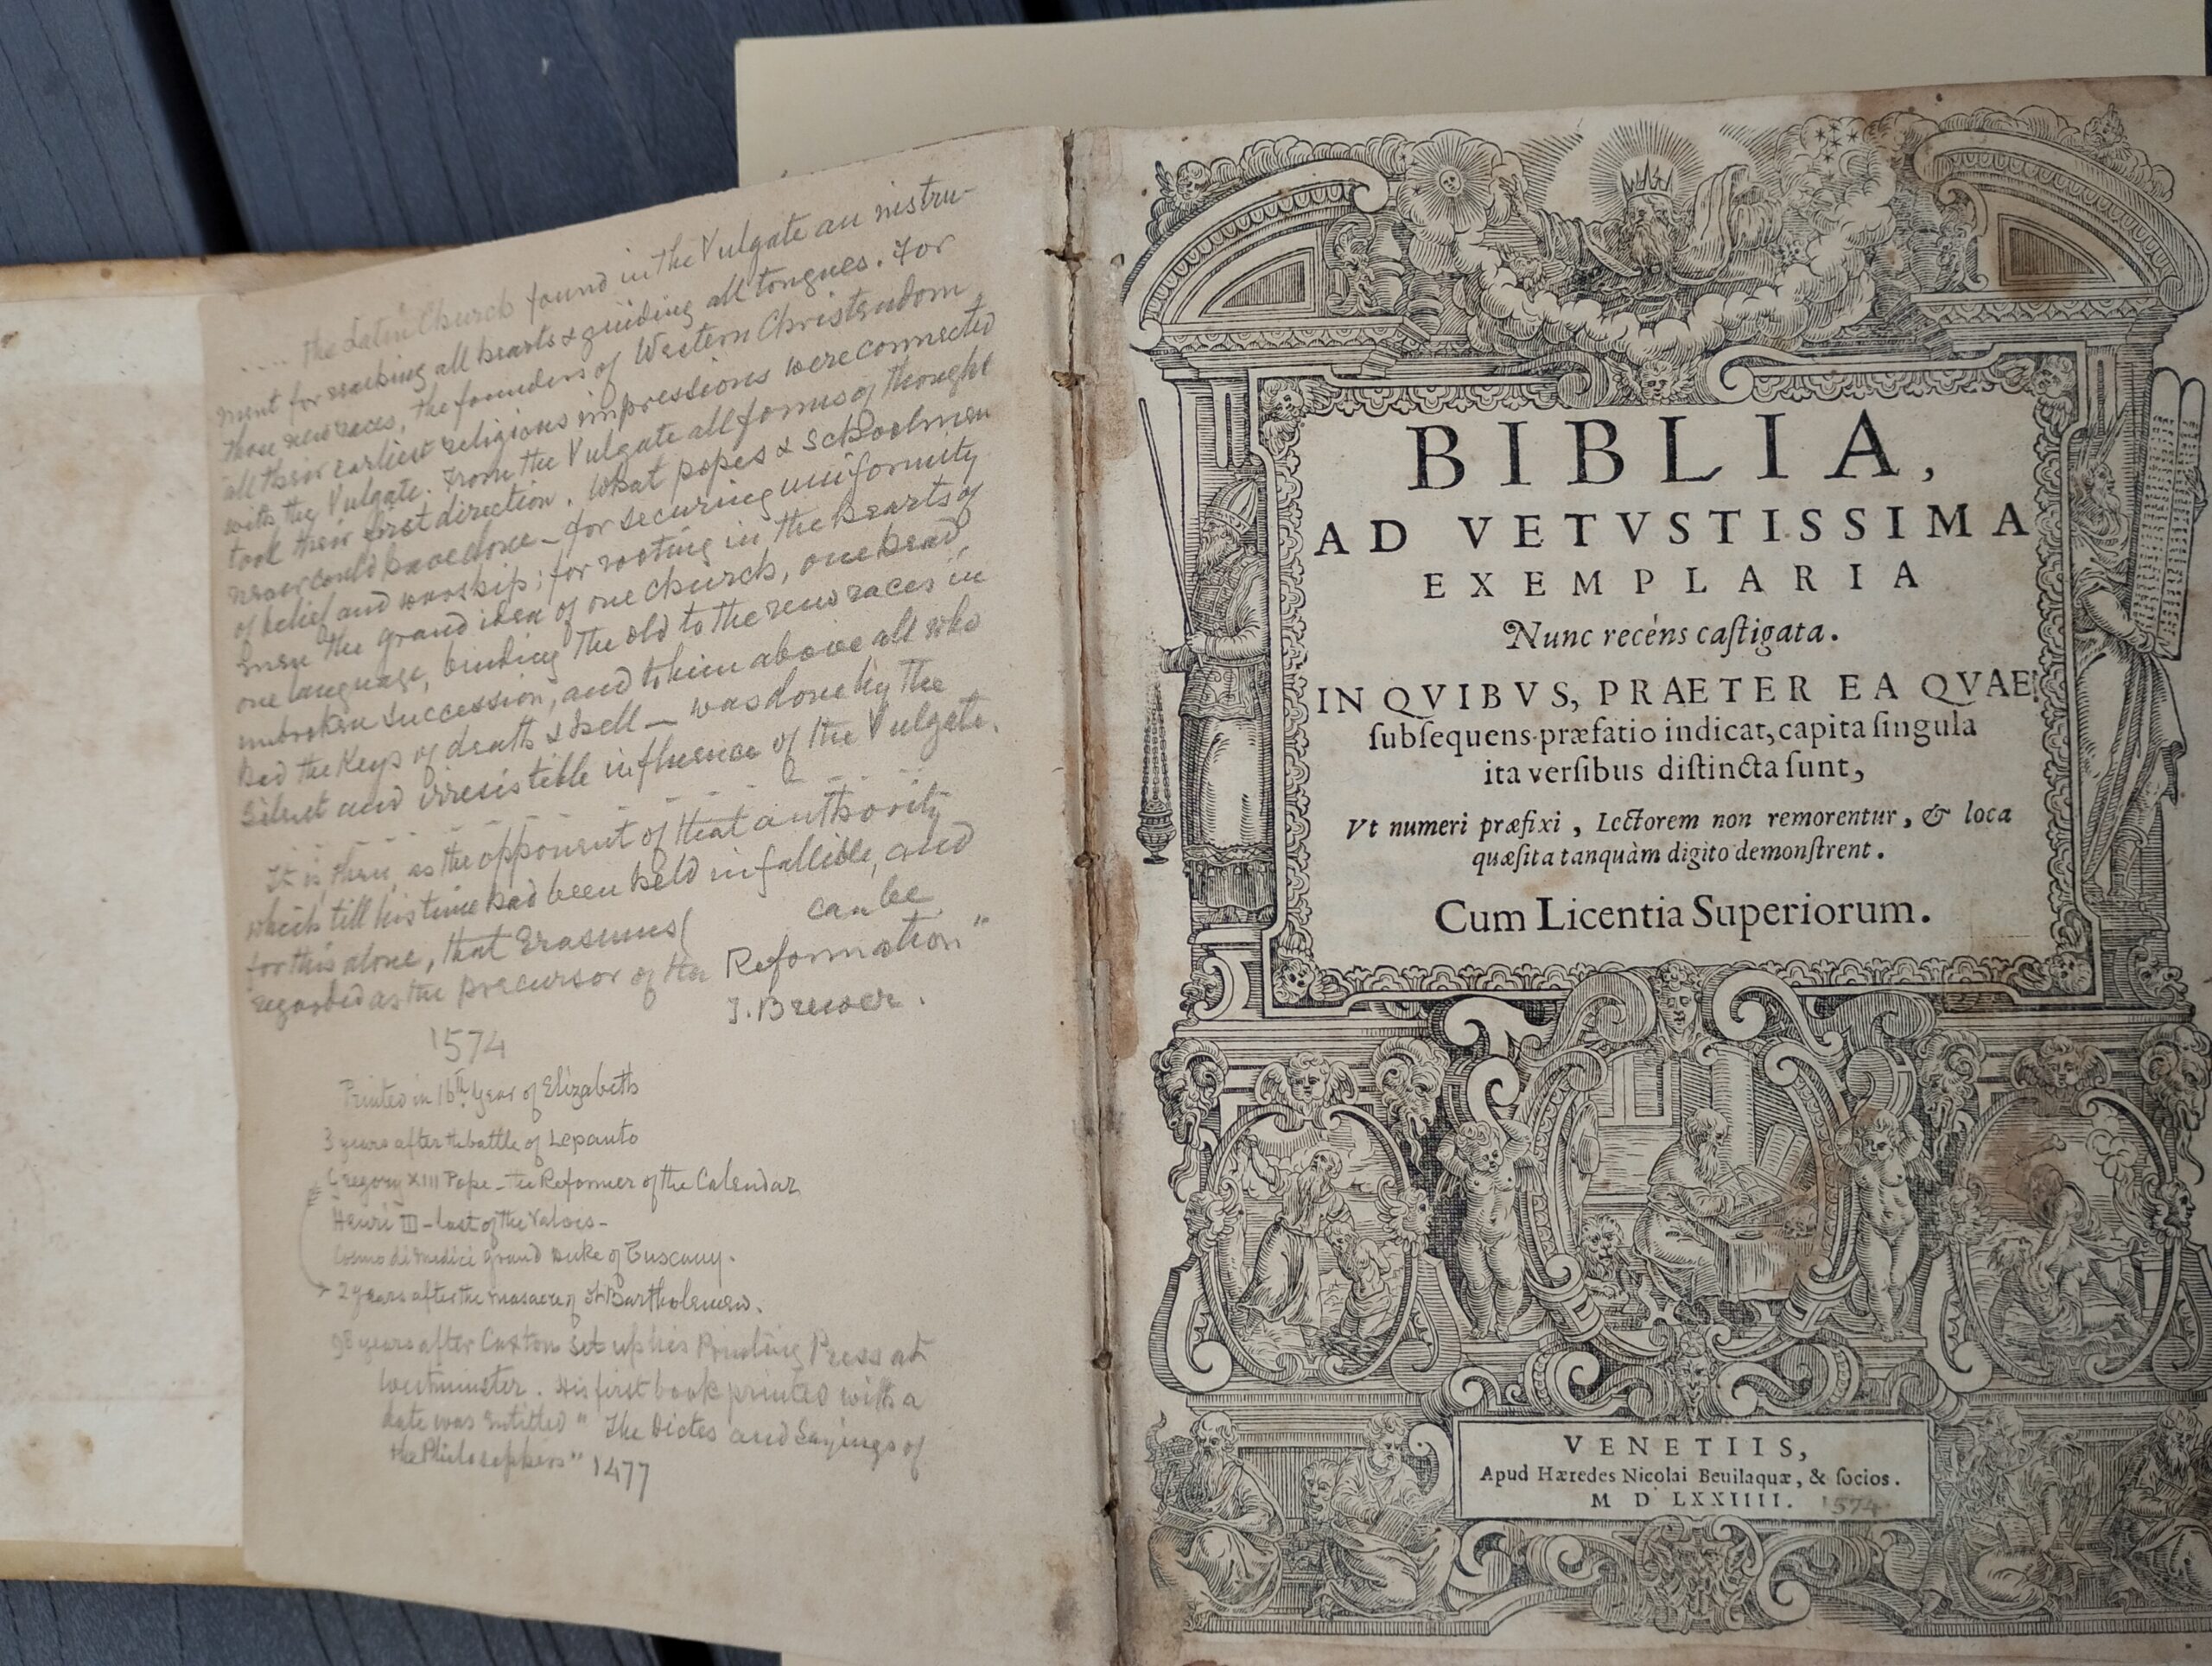 .... The Latin Church found in the Vulgate an instru-
ment for reaching all hearts & guiding all tongues. For
those new races, the founders of Western Christendom,
all their earliest religious impressions were connected
with the Vulgate. From the Vulgate all forms of thought
took their first direction. What popes & Schoolmen
never could have done – for securing uniformity
of belief and worship; for rooting in the hearts of
men the grand idea of one church, one head,
one language, binding the old to the new races in
unbroken succession, and to him above all who
had the Keys of death & hell — was done by the
silent and irresistible influence of the Vulgate.
It is then, as the opponent of that authority
which till his time had been held infallible, and
for this alone, that Erasmus ( can be
regarded as the precursor of the Reformation"
J. Brewer.
1574
Printed in 16th year of Elizabeth
3 years after the battle of Lepanto
Gregory XIII Pope – the Reformer of the Calendar
Henri III – last of the Valois –
Cosmo di Medici Grand Duke of Tuscany.
2 years after the masacre of St Bartholemew.
98 years after Caxton set up his Printing Press at
Westminster. His first book printed with a
date was entitled "The Dictes and Sayings of
the Philosophers" 1477
BIBLIA,
AD VETVSTISSIMA
EXEMPLARIA
Nunc recéns caſtigata.
IN QVIBVS, PRAETER EA QVAE
ſubſequens præfatio indicat, capita ſingula
ita verſibus diſtincta ſunt,
Vt numeri præfixi, Lectorem non remorentur, & loca
quæſita tanquàm digito demonſtrent.
Cum Licentia Superiorum.
VENETIIS,
Apud Hæredes Nicolai Beuilaquæ, & ſocios.
M D LXXIIII. 1574